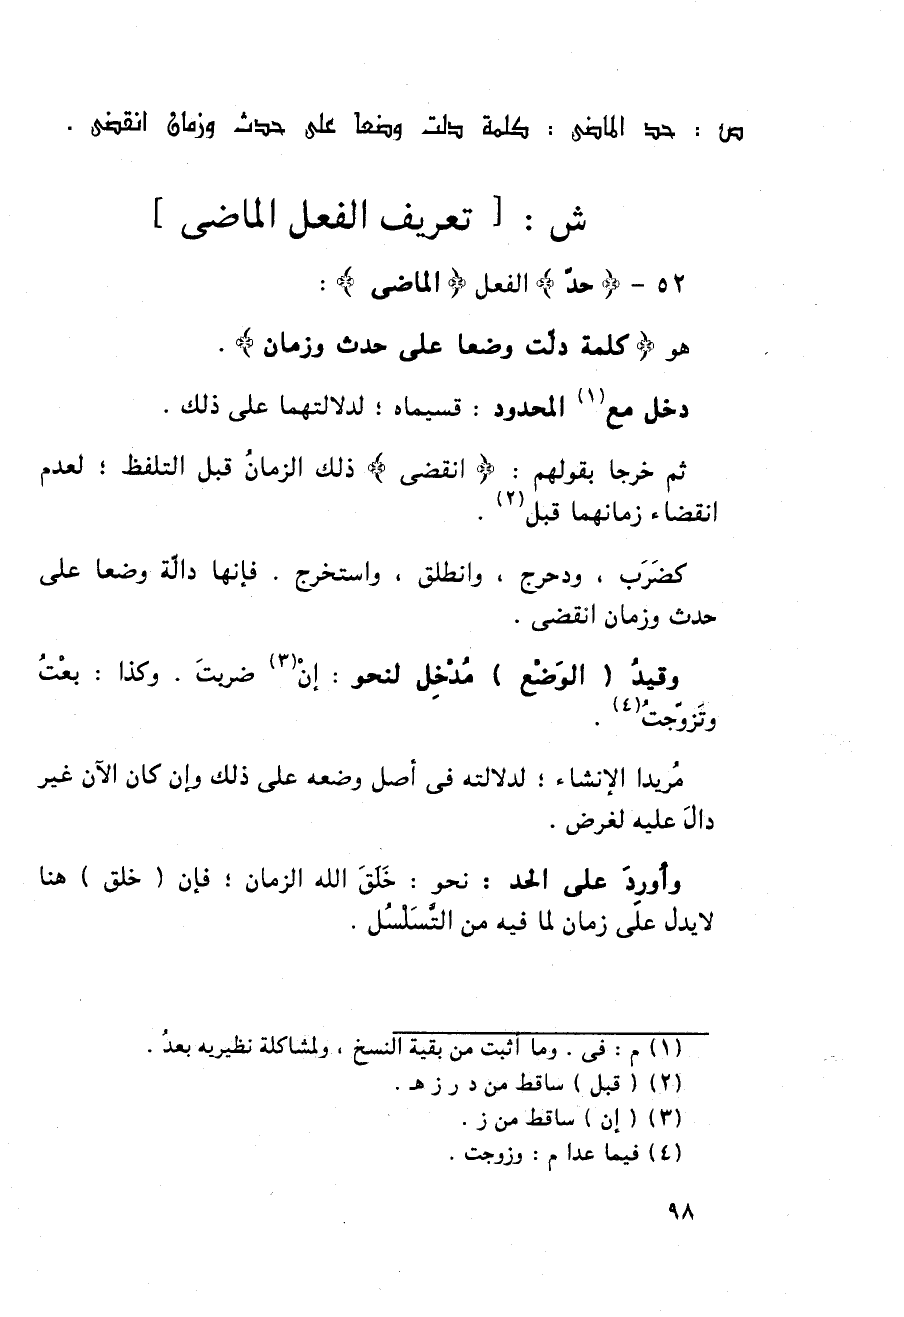 ص : حد الماضى : كلمة دلت وضعا على حدث وزمان انقضى .
ش : [ تعريف الفعل الماضى ]
٥٢ – ﴿ حدّ ﴾ الفعل ﴿ الماضى ﴾ :
هو ﴿ كلمة دلّت وضعا على حدث وزمان ﴾ .
دخل مع(١) المحدود : قسيماه ؛ لدلالتهما على ذلك .
ثم خرجا بقولهم : ﴿ انقضى ﴾ ذلك الزمانُ قبل التلفظ ؛ لعدم
انقضاء زمانهما قبل(٢) .
كضَرَب ، ودحرج ، وانطلق ، واستخرج . فإنها دالّة وضعا على
حدث وزمان انقضى .
وقيدُ ( الوَضْع ) مُدْخِل لنحو : إنْ(٣) ضربتَ . وكذا : بعْتُ
وتَزوّجتُ(٤) .
مُريدا الإنشاء ؛ لدلالته فى أصل وضعه على ذلك وإن كان الآن غير
دالّ عليه لغرض .
وأوردَ على الحد : نحو : خَلَقَ الله الزمان ؛ فإن ( خلق ) هنا
لايدل على زمان لما فيه من التَّسَلْسُل .
(١) م : فى . وما أثبت من بقية النسخ ، ولمشاكلة نظيريه بعدُ .
(٢) ( قبل ) ساقط من د ر ز هـ .
(٣) ( إن ) ساقط من ز .
(٤) فيما عدا م : وزوجت .
٩٨